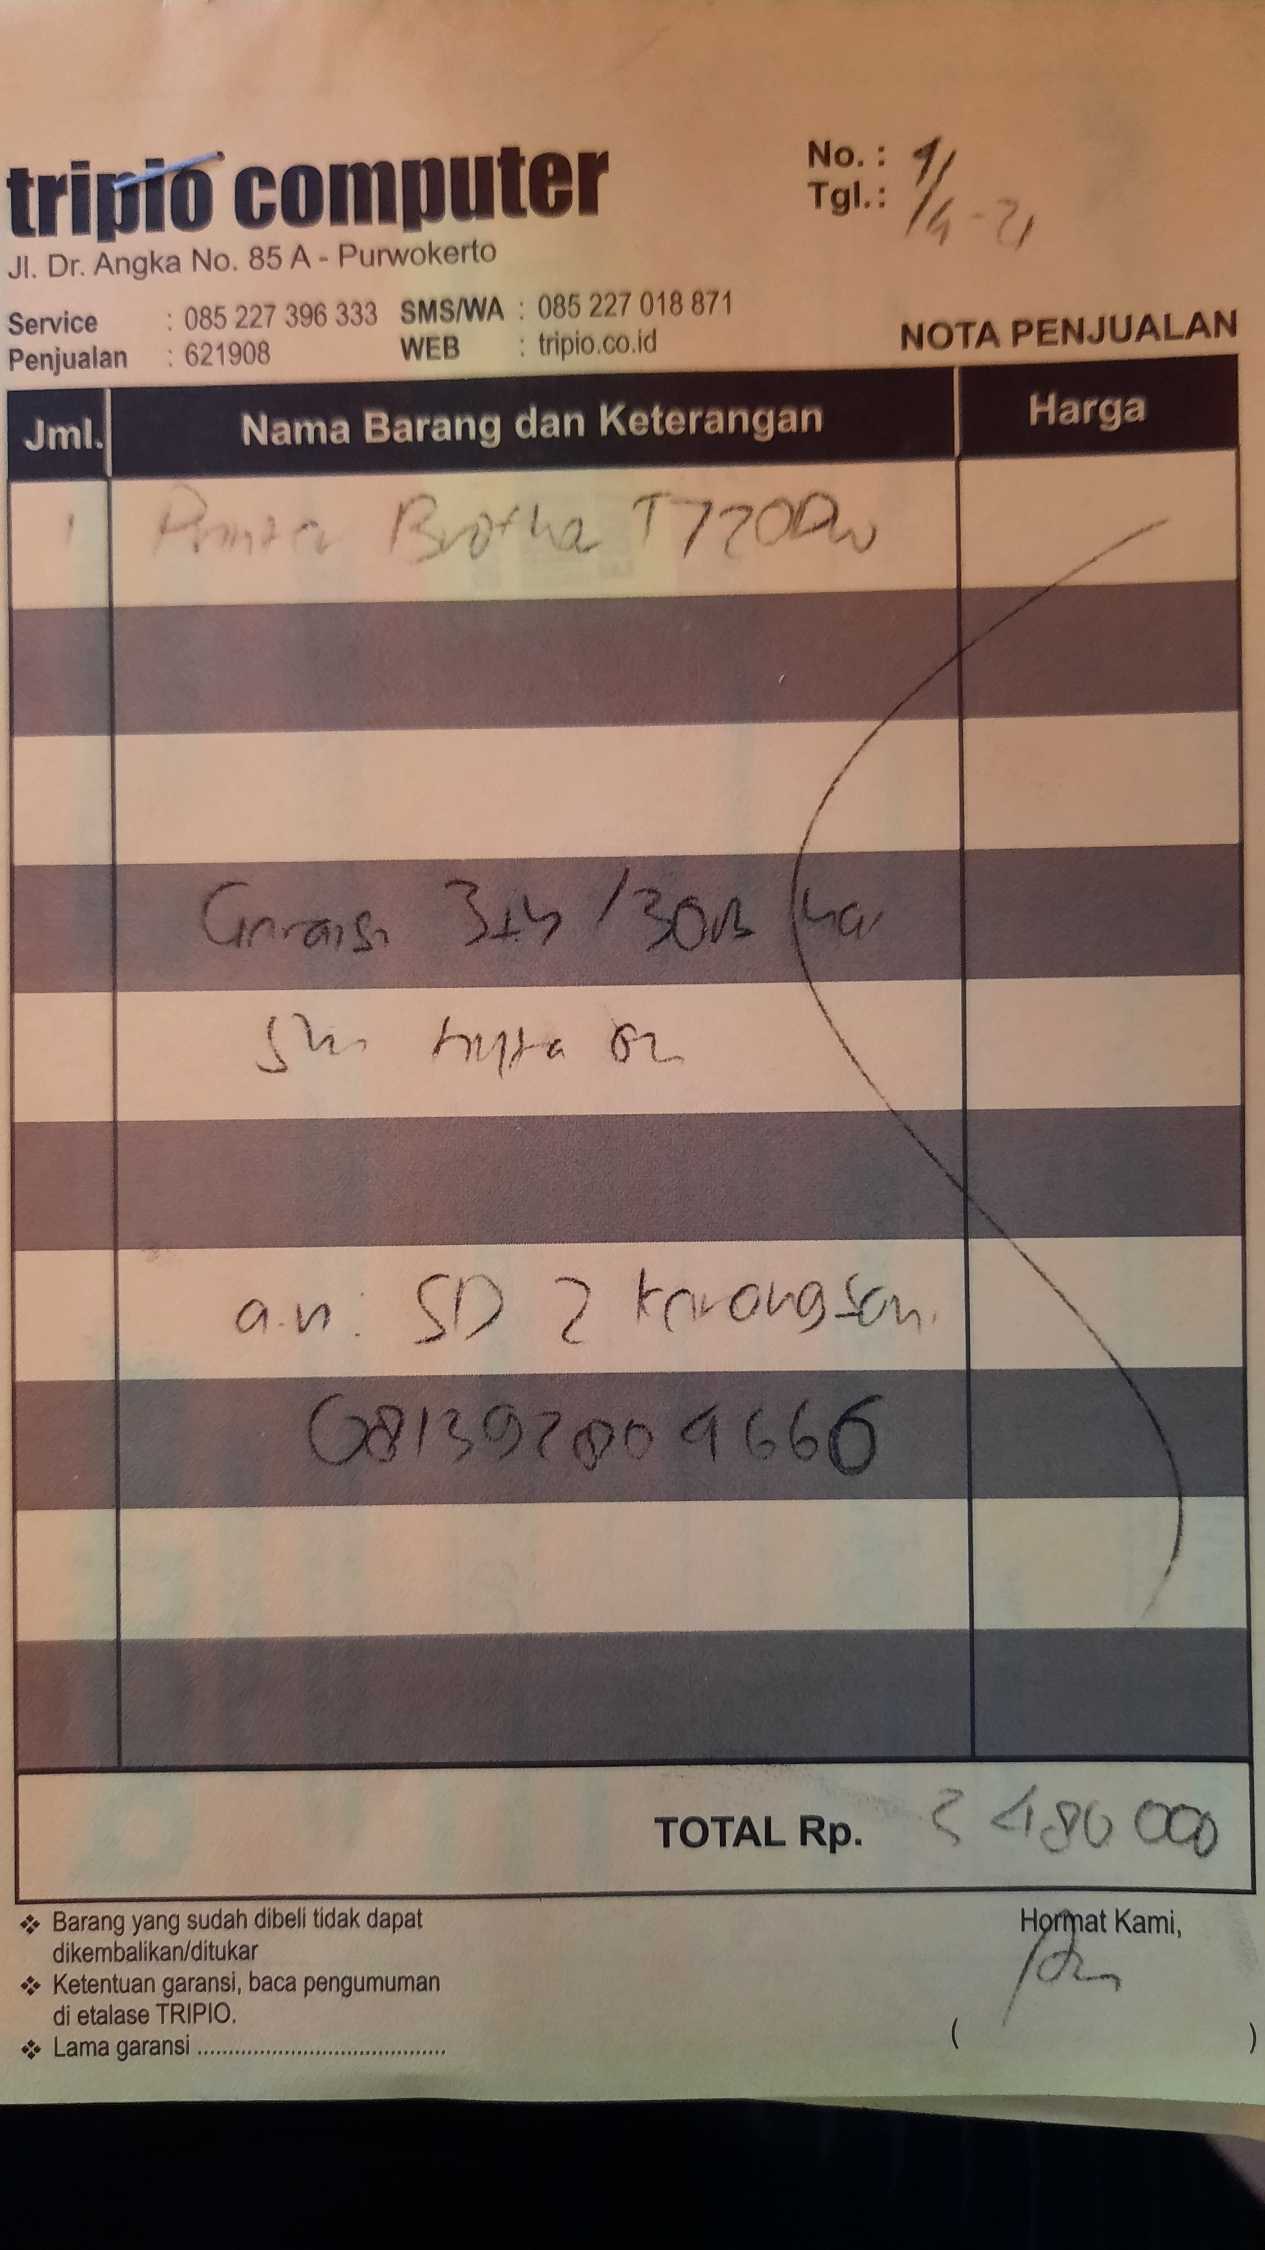 tripio computer
Jl. Dr. Angka No. 85 A - Purwokerto
Service : 085 227 396 333 SMS/WA : 085 227 018 871
Penjualan : 621908 WEB : tripio.co.id
No. :
Tgl. : 9/4-21
NOTA PENJUALAN
Jml. Nama Barang dan Keterangan Harga
1 Printer Brother T720DW
Garansi 3th / 30rb
a.n: SD 2 Karangsari
0813928004666
TOTAL Rp. 3 480 000
❖ Barang yang sudah dibeli tidak dapat
dikembalikan/ditukar
❖ Ketentuan garansi, baca pengumuman
di etalase TRIPIO.
❖ Lama garansi ........................................
Hormat Kami,
( )